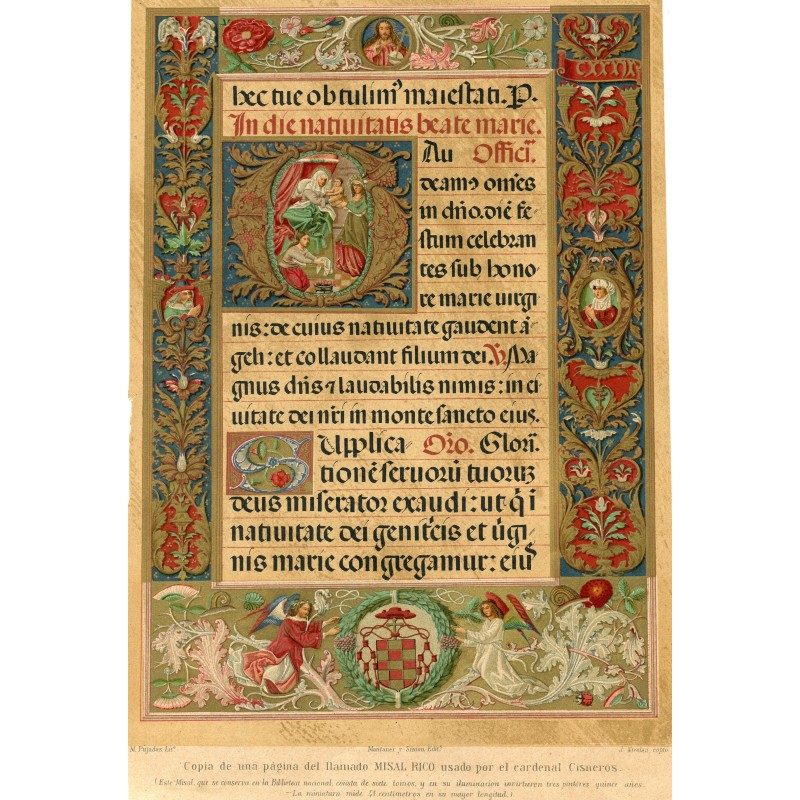 CXXIII
hec tue obtulimꝰ maiestati. P.
In die nativitatis beate marie.
Au Offici.̄
deamꝰ om̄es
in dño. diē fe-
stum celebran
tes sub hono
re marie virgi
nis: de cuius nativitate gaudent ā-
geli: et collaudant filium dei. ℣. Ma
gnus dñs ⁊ laudabilis nimis: in ci
vitate dei nr̄i in monte sancto eius.
Supplica Or̄o. Glori.̄
tionē servorū tuoruꝫ
deus miserator exaudi: ut q̄i
nativitate dei genitr̄cis et v̄gi
nis marie congregamur: eiuꝰ
M. Pujadas, Lit.º Montaner y Simon, Edit.s
Copia de una página del llamado MISAL RICO usado por el cardenal Cisneros.
(Este Misal, que se conserva en la Biblioteca nacional, consta de siete tomos, y en su iluminacion invirtieron tres pintores quince años.
—La miniatura mide 41 centímetros en su mayor longitud.)